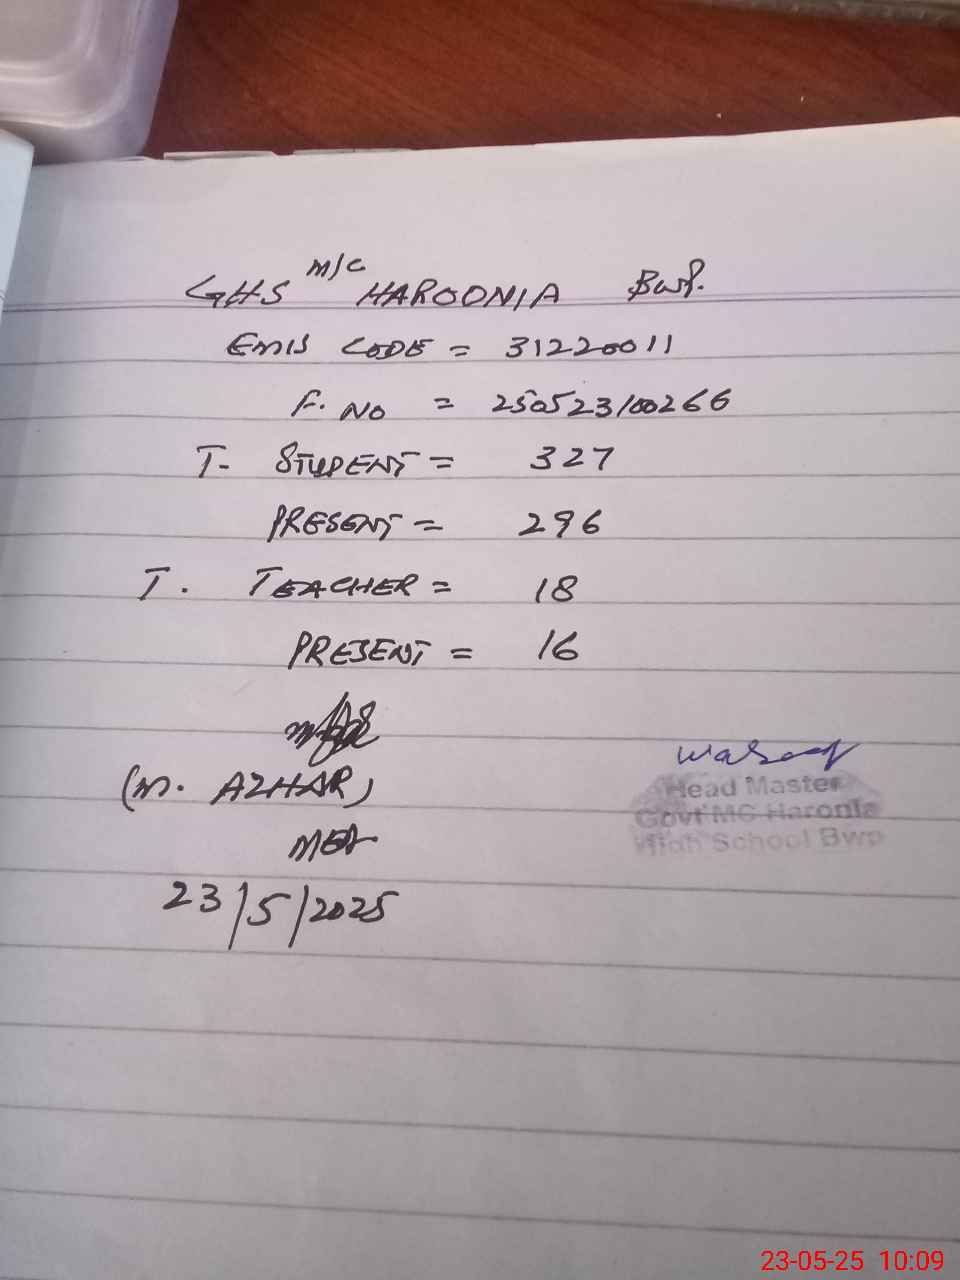 GHS M/C HAROONIA Bwp.
EMIS CODE = 31220011
F. NO = 250523100266
T. STUDENT = 327
PRESENT = 296
T. TEACHER = 18
PRESENT = 16
(M. AZHAR)
MEA
23/5/2025
Head Master
Govt MC Haronia
High School Bwp
23-05-25 10:09